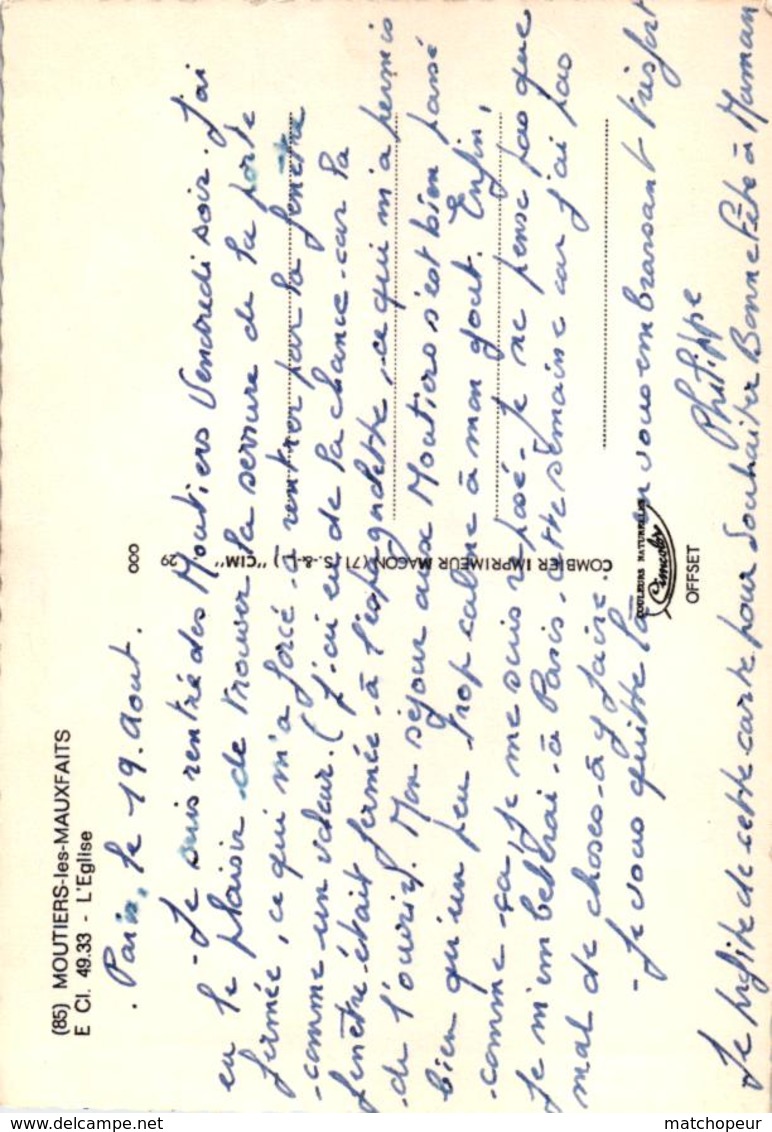 (85) MOUTIERS-les-MAUXFAITS
E Cl. 49.33 - L'Eglise
. Paris, le 19. Aout.
- Je suis rentré des Moutiers Vendredi soir. J'ai
eu le plaisir de trouver la serrure de la porte
fermée, ce qui m'a forcé à rentrer par la fenêtre
- comme un voleur. (J'ai eu de la chance - car la
fenêtre était fermée - à l'espagnolette, ce qui m'a permis
- de l'ouvrir). Mon séjour aux Moutiers s'est bien passé
bien qu'un peu trop calme à mon gout. Enfin,
- comme ça, je me suis reposé - Je ne pense pas que
Je m'embeterai - à Paris - cette semaine car j'ai pas
mal de choses - à y faire.
- Je vous quitte là en vous embrassant très fort
Philippe
Je profite de cette carte pour souhaiter Bonne fête à Maman
COMBIER IMPRIMEUR MACON (71 S.-&-L.) "CIM"
29
000
COULEURS NATURELLES
Cimcolor
OFFSET
matchopeur